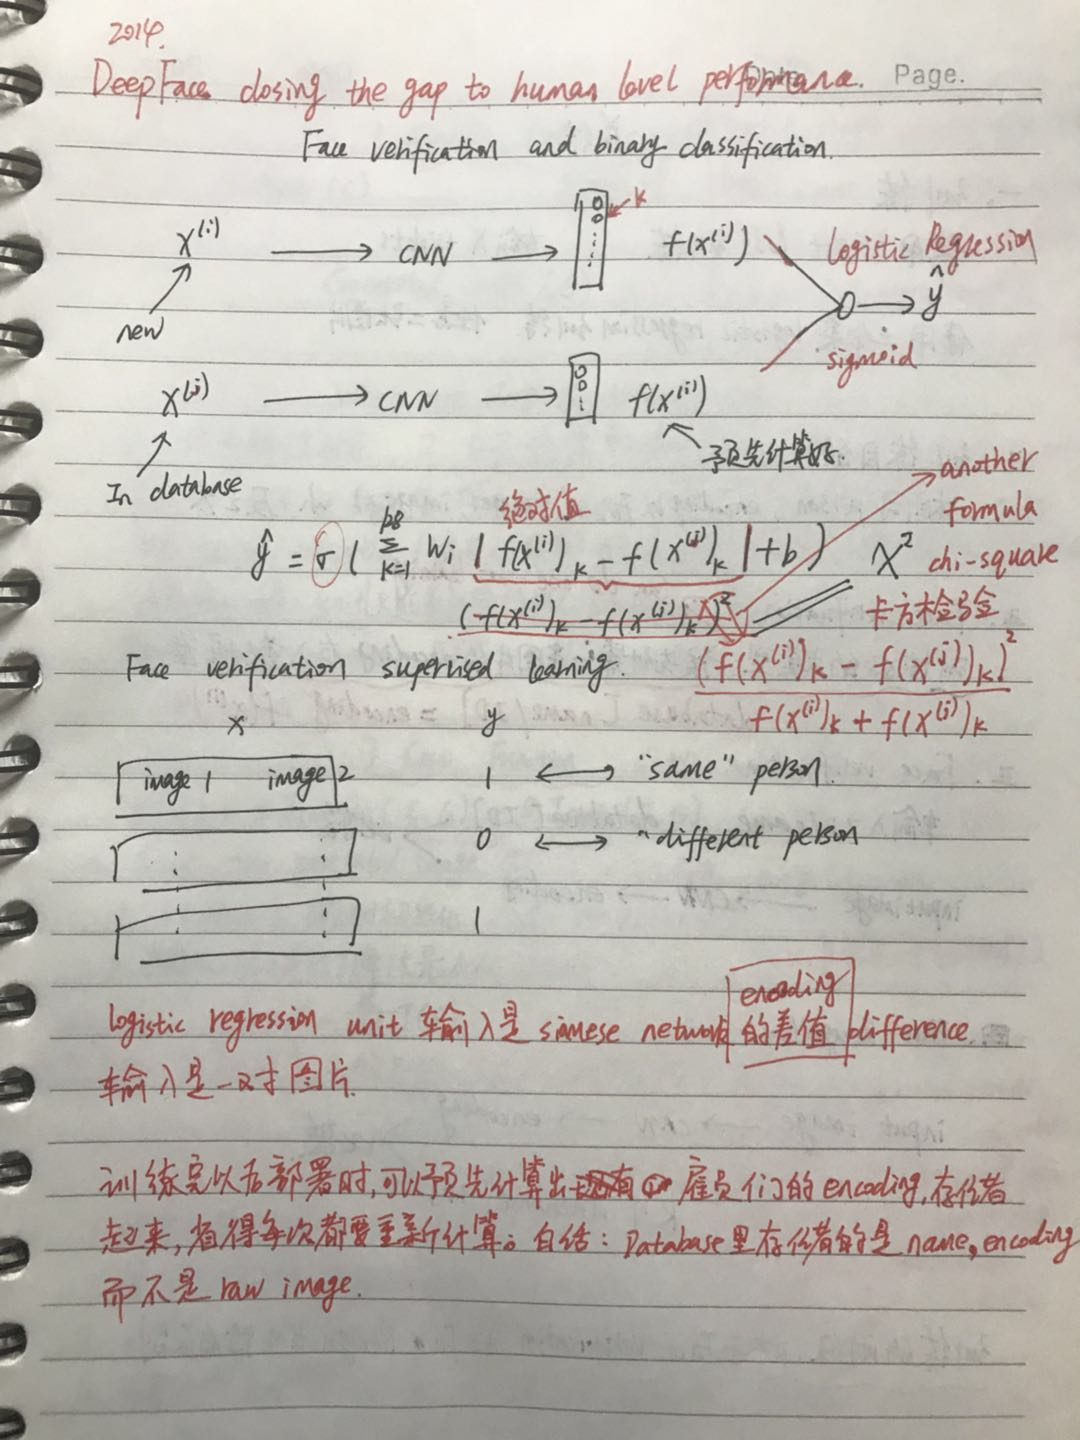 2014.
DeepFace closing the gap to human level performance. Page.
Face verification and binary classification.
k
x⁽ⁱ⁾ → CNN → f(x⁽ⁱ⁾) Logistic Regression
new → ŷ
sigmoid
x⁽ʲ⁾ → CNN → f(x⁽ʲ⁾)
In database 预先计算好. another
绝对值 formula
ŷ = σ( Σ_{k=1}^{128} Wᵢ | f(x⁽ⁱ⁾)ₖ − f(x⁽ʲ⁾)ₖ | + b ) χ² chi-square
(f(x⁽ⁱ⁾)ₖ − f(x⁽ʲ⁾)ₖ)² 卡方检验
Face verification supervised learning. (f(x⁽ⁱ⁾)ₖ − f(x⁽ʲ⁾)ₖ)²
x y f(x⁽ⁱ⁾)ₖ + f(x⁽ʲ⁾)ₖ
image 1 image 2 1 ↔ "same" person.
0 ↔ "different person
1
encoding
logistic regression unit 输入是 siamese network 的差值 difference
输入是一对图片.
训练完以后部署时,可以预先计算出 雇员们的 encoding,存储
起来,省得每次都要重新计算。总结: Database里存储的是 name, encoding
而不是 raw image.